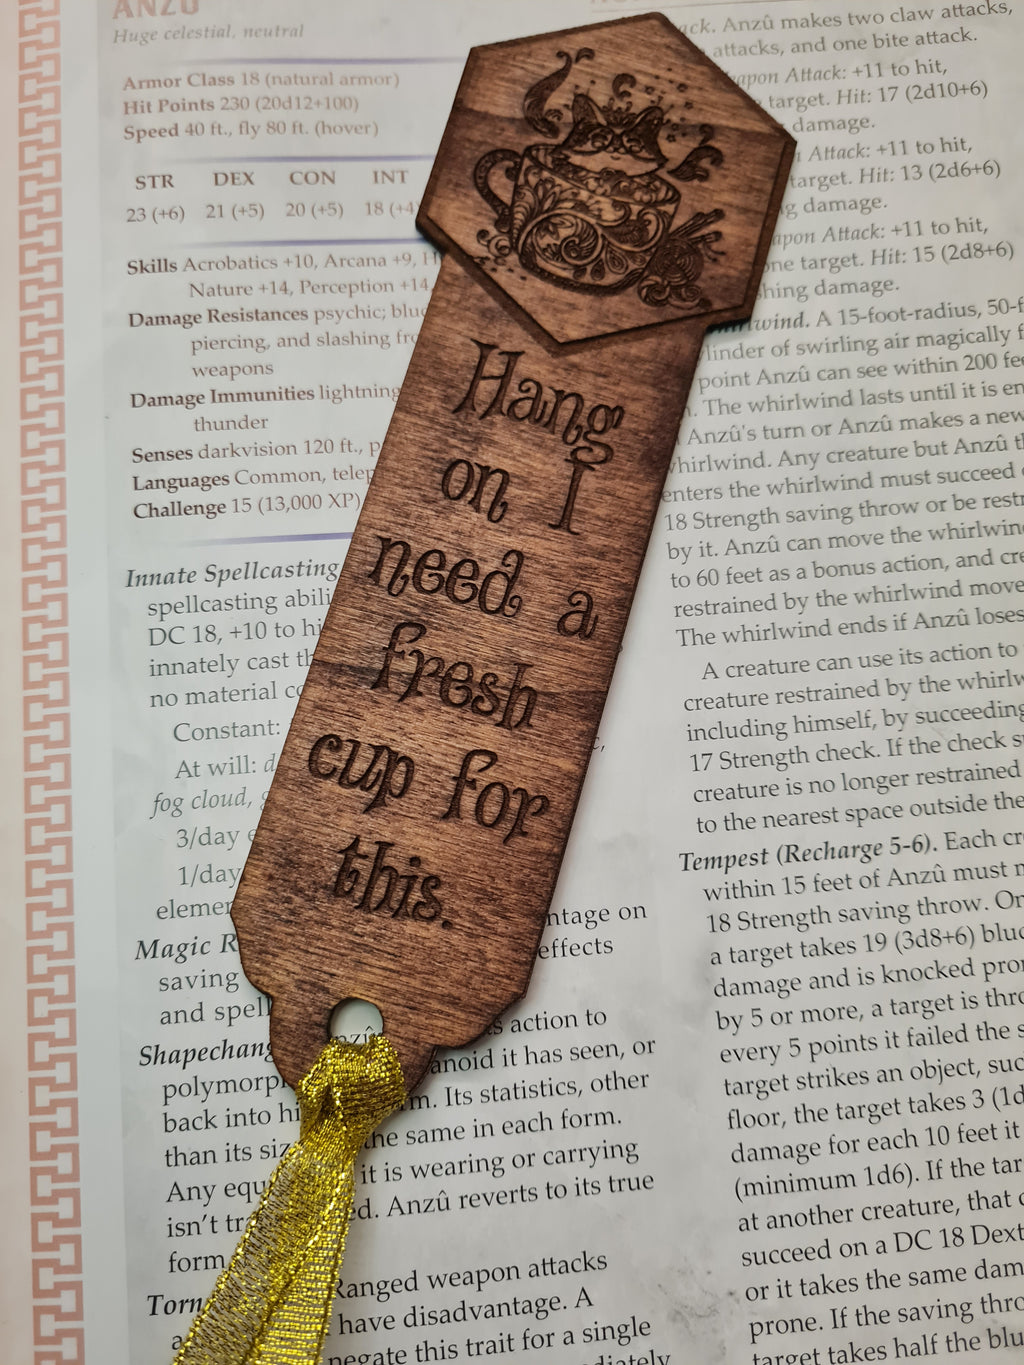 ANZÛ
Huge celestial, neutral
Armor Class 18 (natural armor)
Hit Points 230 (20d12+100)
Speed 40 ft., fly 80 ft. (hover)
STR DEX CON INT
23 (+6) 21 (+5) 20 (+5) 18 (+4
Skills Acrobatics +10, Arcana +9,
Nature +14, Perception +14
Damage Resistances psychic;
piercing, and slashing
weapons
Damage Immunities lightning
thunder
Senses darkvision 120 ft.,
Languages Common,
Challenge 15 (13,000 XP)
Innate Spellcasting
spellcasting
DC 18, +10 to
innately cast
no material
Constant:
At will:
fog cloud,
3/day
1/day
Magic
saving
and
ntage on
effects
action to
anoid it has seen, or
back into
m. Its statistics, other
than its
the same in each form.
Any
it is wearing or carrying
isn't
ed. Anzû reverts to its true
form
Ranged weapon attacks
have disadvantage. A
negate this trait for a single
Hang
on I
need a
fresh
cup for
this.
ack. Anzû makes two claw attacks,
attacks, and one bite attack.
apon Attack: +11 to hit,
target. Hit: 17 (2d10+6)
damage.
Attack: +11 to hit,
target. Hit: 13 (2d6+6)
damage.
apon Attack: +11 to hit,
one target. Hit: 15 (2d8+6)
shing damage.
irlwind. A 15-foot-radius, 50-f
linder of swirling air magically f
point Anzû can see within 200 fee
The whirlwind lasts until it is en
Anzû's turn or Anzû makes a new
whirlwind. Any creature but Anzû th
enters the whirlwind must succeed
18 Strength saving throw or be restr
by it. Anzû can move the whirlwind
to 60 feet as a bonus action, and cre
restrained by the whirlwind move
The whirlwind ends if Anzû loses
A creature can use its action to
creature restrained by the whirlw
including himself, by succeeding
17 Strength check. If the check s
creature is no longer restrained
to the nearest space outside the
Tempest (Recharge 5-6). Each cr
within 15 feet of Anzû must
18 Strength saving throw. On
a target takes 19 (3d8+6) blud
damage and is knocked pron
by 5 or more, a target is thro
every 5 points it failed the s
target strikes an object, suc
floor, the target takes 3 (1d
damage for each 10 feet it
(minimum 1d6). If the tar
at another creature, that
succeed on a DC 18 Dext
or it takes the same dam
prone. If the saving thro
target takes half the blu